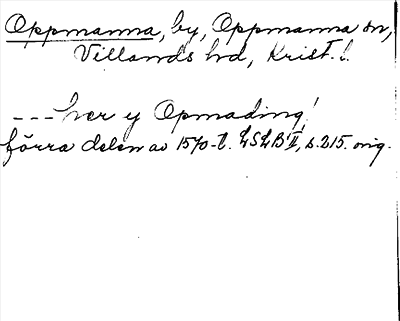 Oppmanna, by, Oppmanna sn,
Villands hd, Krist. l.
--- her y Opmading!
förra delen av 1570-t. LSLB II, s. 215. orig.